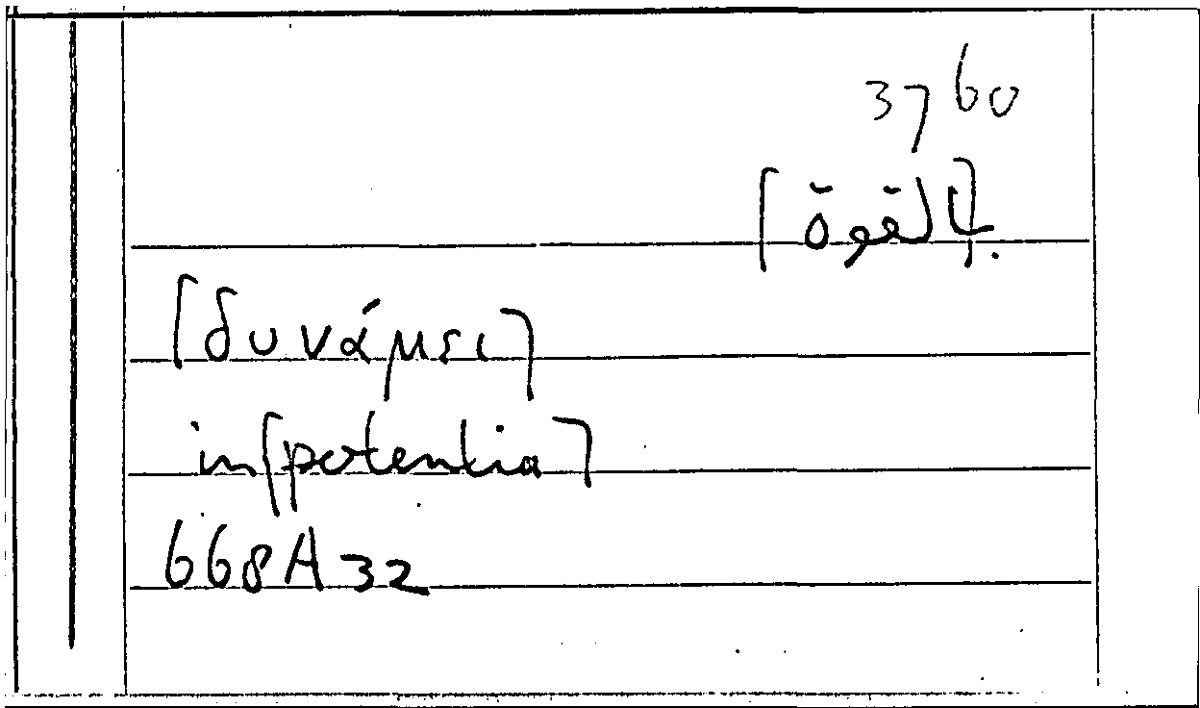 3760
[بالقوة]
[δυνάμει]
in[potentia]
668A32